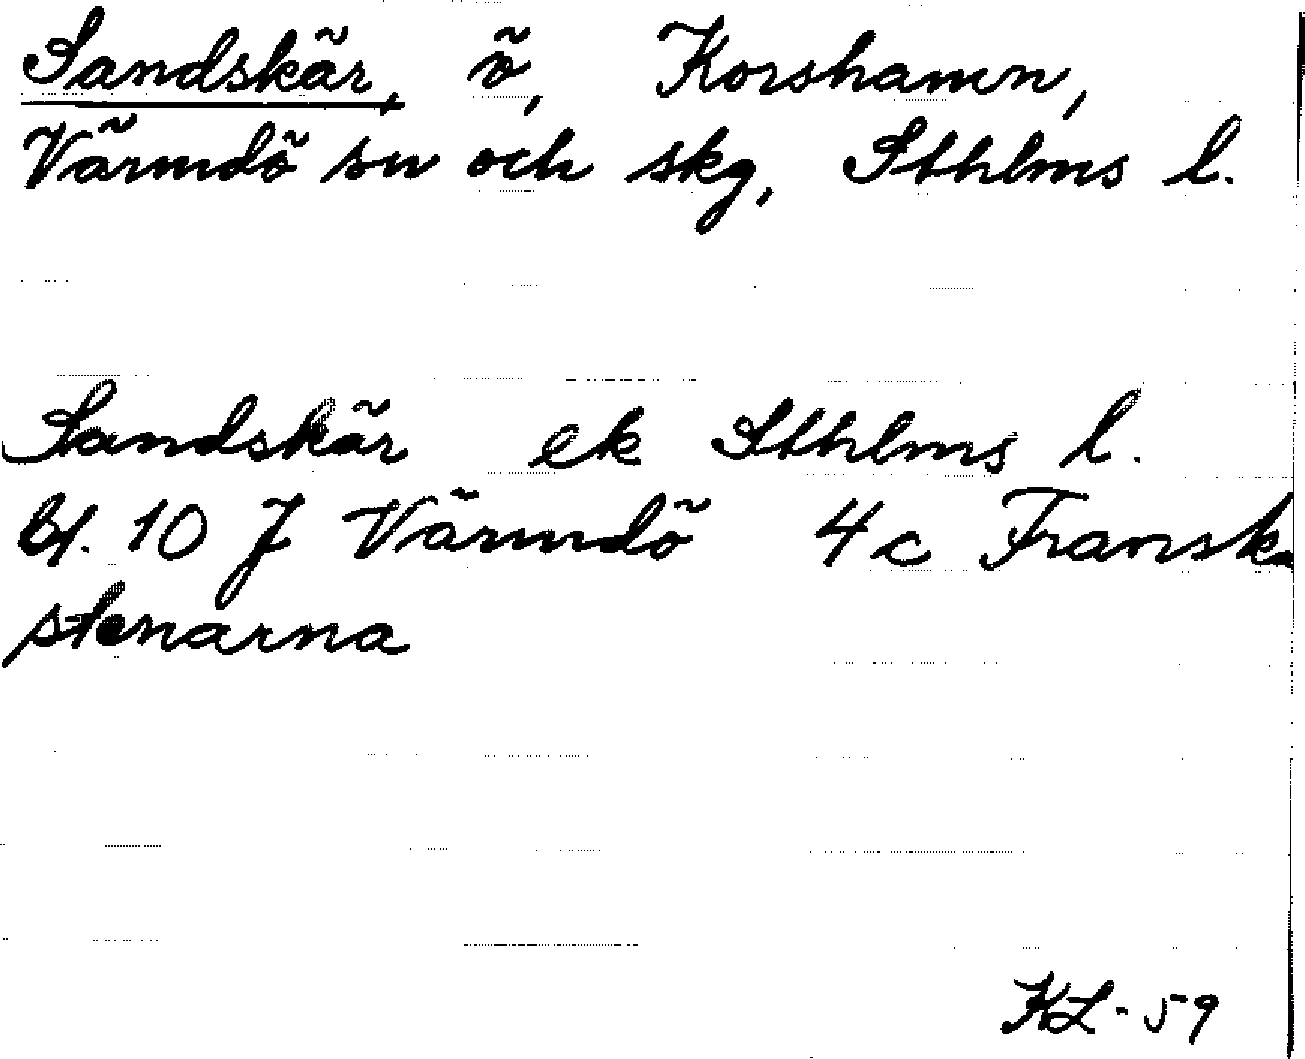 Sandskär, ö, Korshamn,
Värmdö sn och skg, Sthlms l.
Sandskär ek Sthlms l.
bl. 10 J Värmdö 4 c Franska
stenarna
KL-59